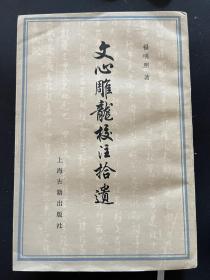 楊明照 著
文心雕龍校注拾遺
上海古籍出版社